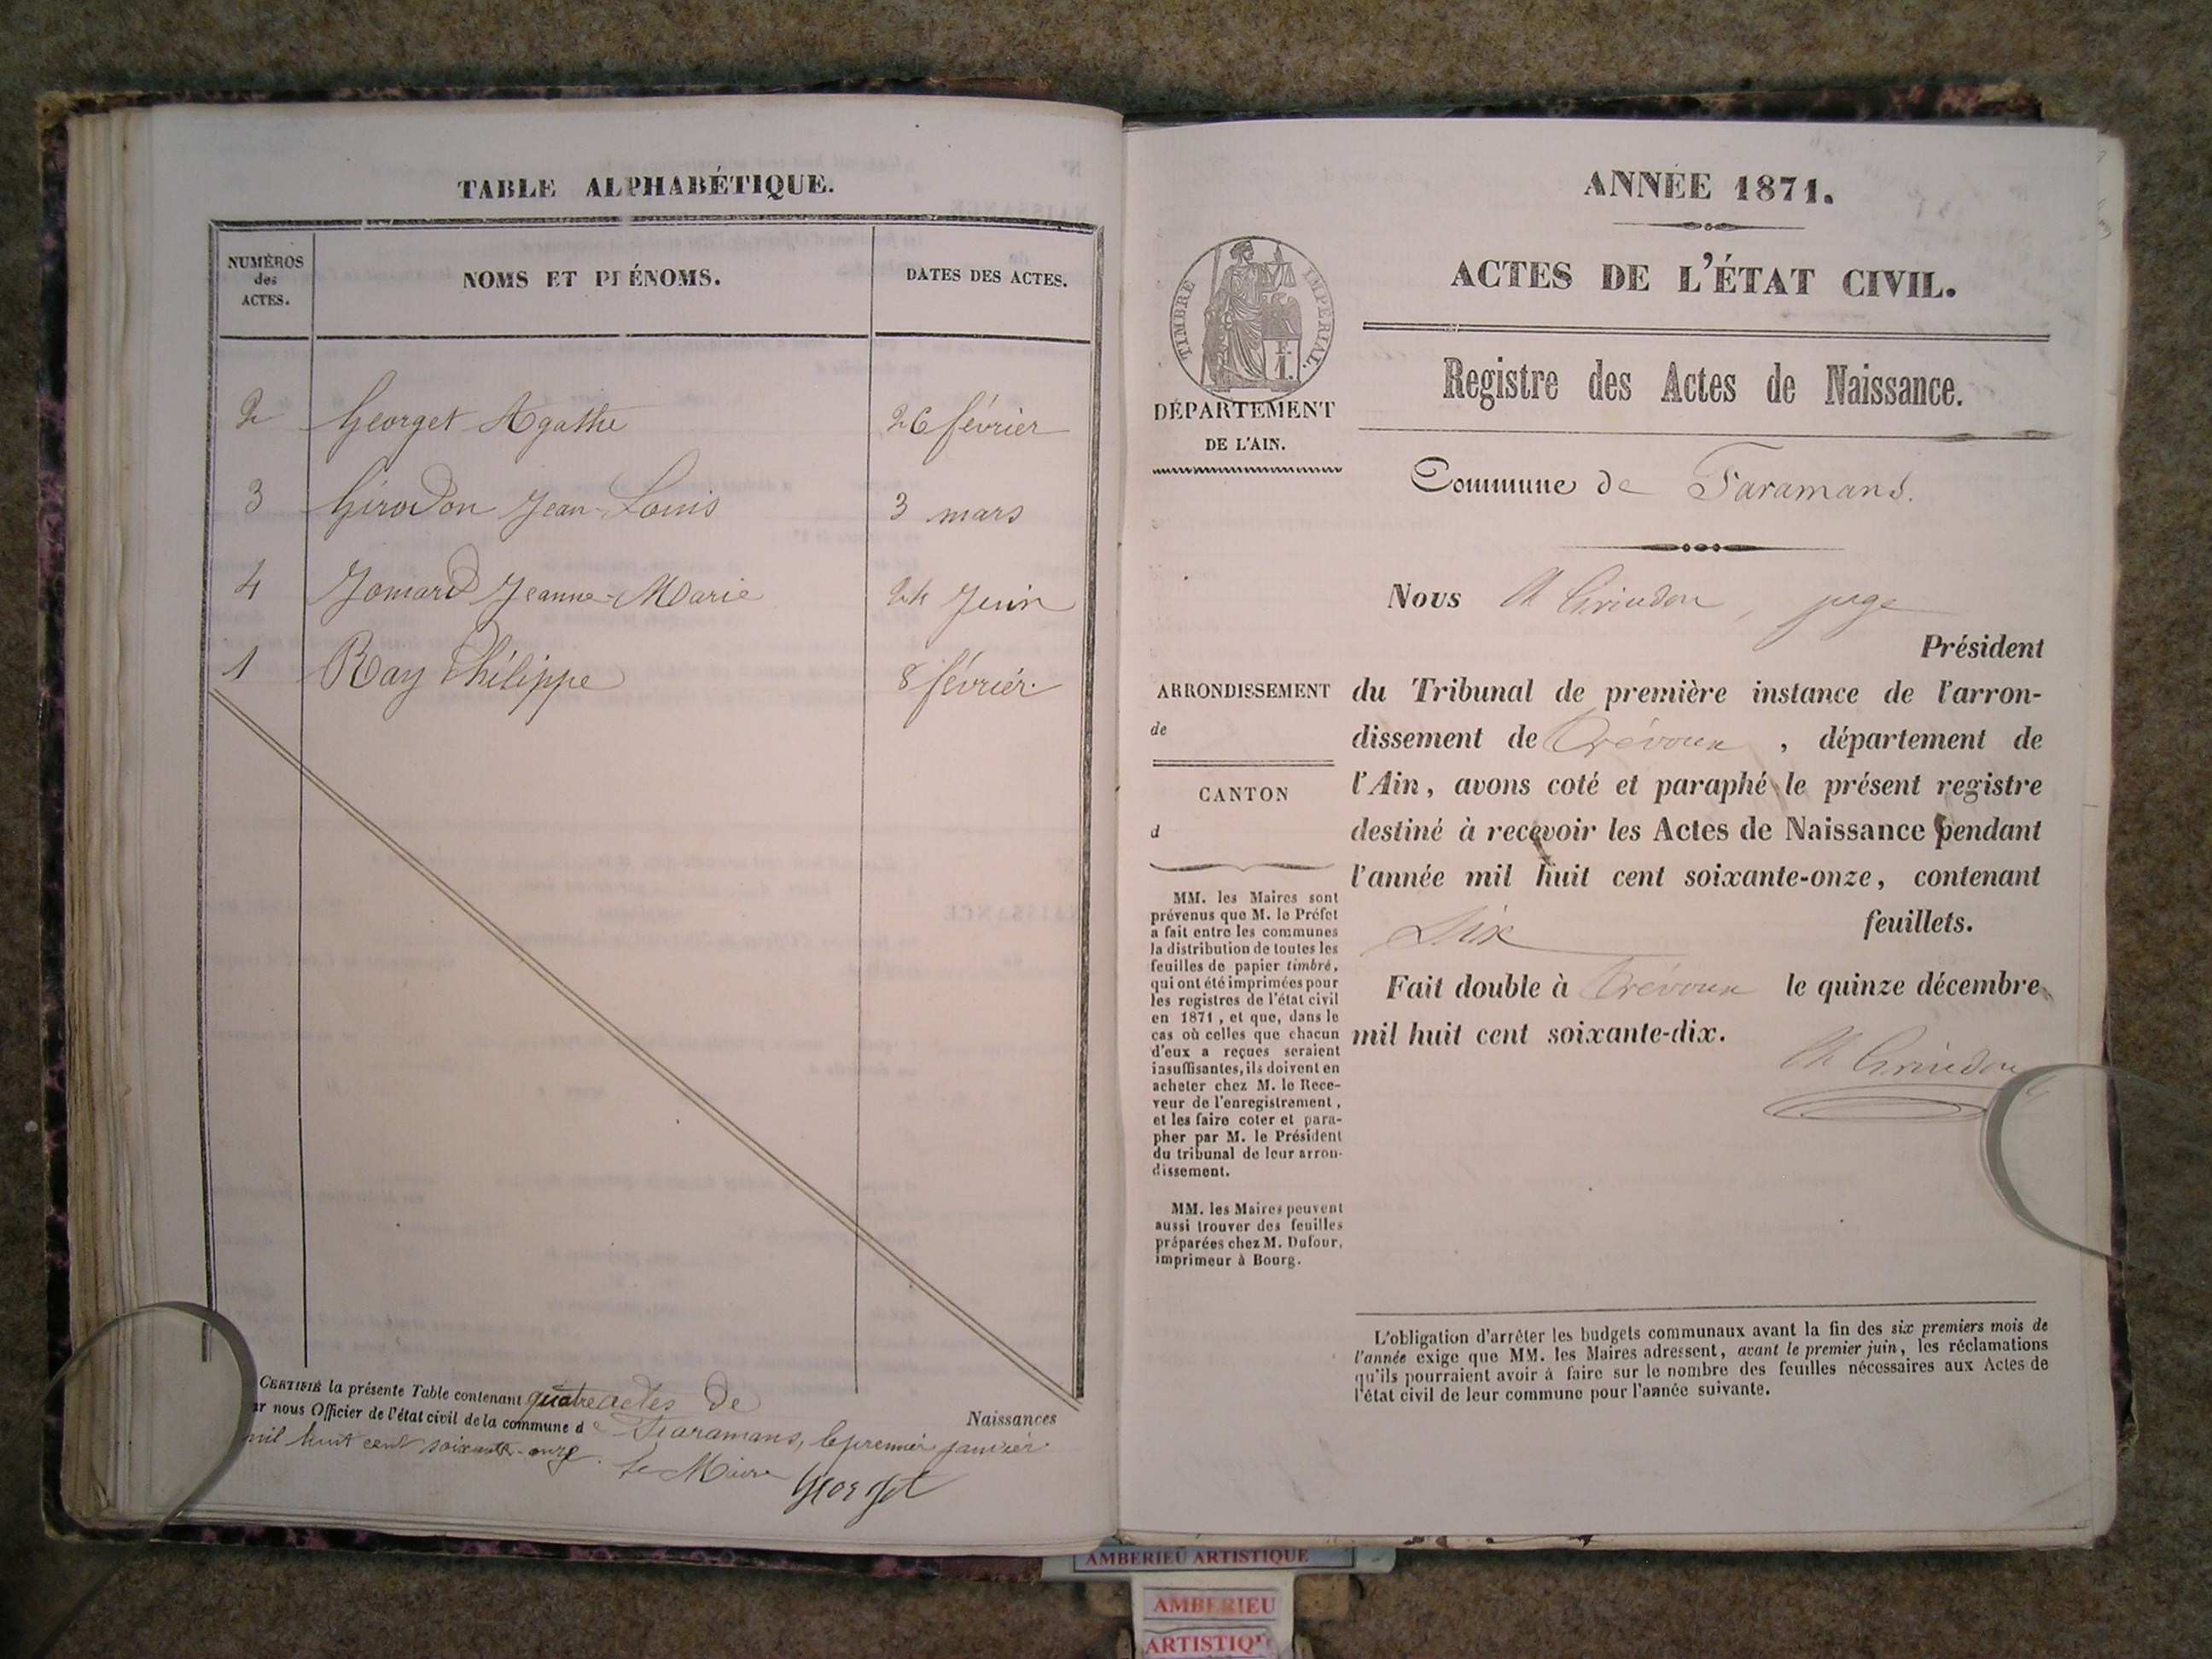 TABLE ALPHABÉTIQUE.
NUMÉROS
des
ACTES.
NOMS ET PRÉNOMS.
DATES DES ACTES.
2 Georget Agathe 26 février
3 Girodon Jean-Louis 3 mars
4 Jomard Jeanne-Marie 24 Juin
1 Ray Philippe 8 février.
CERTIFIÉ la présente Table contenant quatre actes de
Naissances
ar nous Officier de l'état civil de la commune de Faramans, le premier janvier
mil huit cent soixante-onze. Le Maire
Georget
ANNÉE 1871.
ACTES DE L'ÉTAT CIVIL.
TIMBRE IMPÉRIAL.
Registre des Actes de Naissance.
DÉPARTEMENT
DE L'AIN.
Commune de Faramans.
Nous juge
Président
ARRONDISSEMENT
de
CANTON
d
du Tribunal de première instance de l'arron-
dissement de Trévoux, département de
l'Ain, avons coté et paraphé le présent registre
destiné à recevoir les Actes de Naissance pendant
l'année mil huit cent soixante-onze, contenant
Six feuillets.
Fait double à Trévoux le quinze décembre
mil huit cent soixante-dix.
MM. les Maires sont
prévenus que M. le Préfet
a fait entre les communes
la distribution de toutes les
feuilles de papier timbré,
qui ont été imprimées pour
les registres de l'état civil
en 1871, et que, dans le
cas où celles que chacun
d'eux a reçues seraient
insuffisantes, ils doivent en
acheter chez M. le Rece-
veur de l'enregistrement,
et les faire coter et para-
pher par M. le Président
du tribunal de leur arron-
dissement.
MM. les Maires peuvent
aussi trouver des feuilles
préparées chez M. Dufour,
imprimeur à Bourg.
L'obligation d'arrêter les budgets communaux avant la fin des six premiers mois de
l'année exige que MM. les Maires adressent, avant le premier juin, les réclamations
qu'ils pourraient avoir à faire sur le nombre des feuilles nécessaires aux Actes de
l'état civil de leur commune pour l'année suivante.
AMBERIEU ARTISTIQUE
AMBERIEU
ARTISTIQU